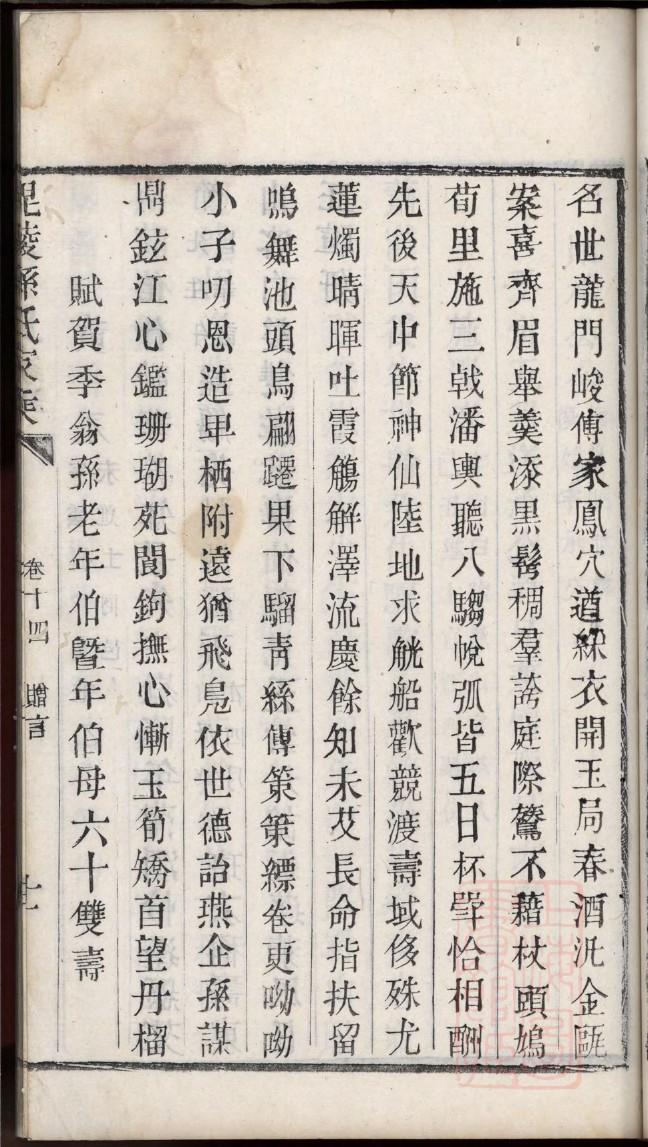 名世龍門峻傳家鳳穴遒綵衣開玉局春酒汎金甌
案喜齊眉舉羹添黑髩稠羣誇庭際鶩不藉杖頭鳩
荀里施三戟潘輿聽八騶帨弧皆五日杯斝恰相酬
先後天中節神仙陸地求觥船歡競渡壽域侈殊尤
蓮燭晴暉吐霞觴解澤流慶餘知未艾長命指扶留
鳴舞池頭鳥翩躚果下騮靑絲傳策策縹卷更呦呦
小子叨恩造早栖附遠猶飛凫依世德詒燕企孫謀
鼎鉉江心鑑珊瑚苑閬鉤撫心慚玉筍矯首望丹榴
賦賀季翁孫老年伯曁年伯母六十雙壽
毘陵孫氏家乗
卷十四 贈言